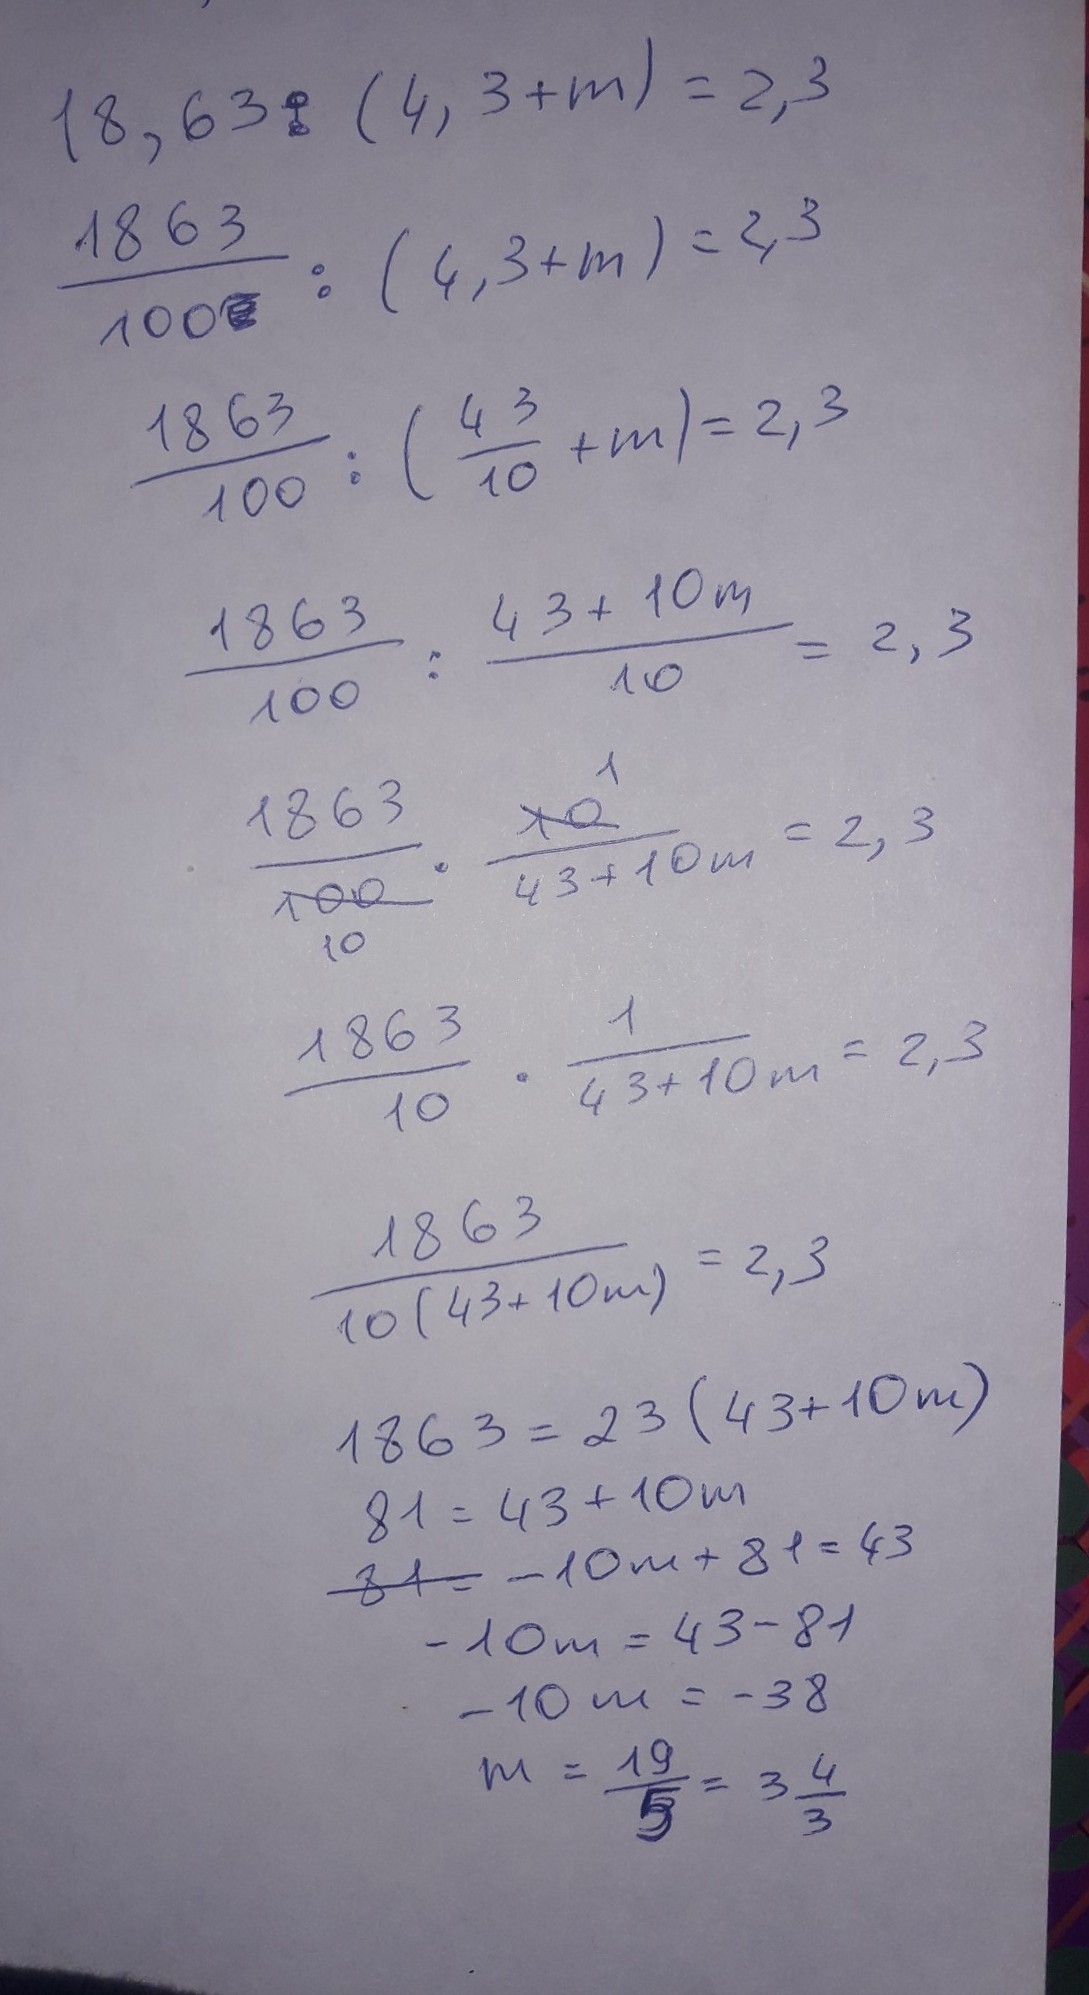 18,63 : (4,3+m) = 2,3
1863/100 : (4,3+m) = 2,3
1863/100 : (43/10 + m) = 2,3
1863/100 : (43+10m)/10 = 2,3
1863/100 10 · 10 1/(43+10m) = 2,3
1863/10 · 1/(43+10m) = 2,3
1863/(10(43+10m)) = 2,3
1863 = 23(43+10m)
81 = 43+10m
81 = -10m+81 = 43
-10m = 43-81
-10m = -38
m = 19/5 = 3 4/3